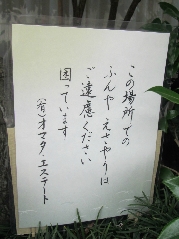 この場所での
ふんや えさやりは
ご遠慮ください
困っています
(有)オマタエステート